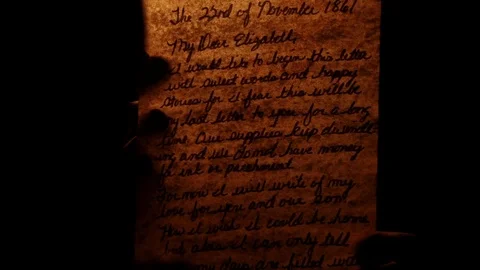 The 22nd of November 1861
My Dear Elizabeth,
I would like to begin this letter
with sweet words and happy
stories for I fear this will be
my last letter to you for a long
time. Our supplies keep dwindl
ing and we do not have money
for ink or parchment.
For now I will write of my
love for you and our son.
How I wish I could be home
but alas I can only tell
my days are filled with